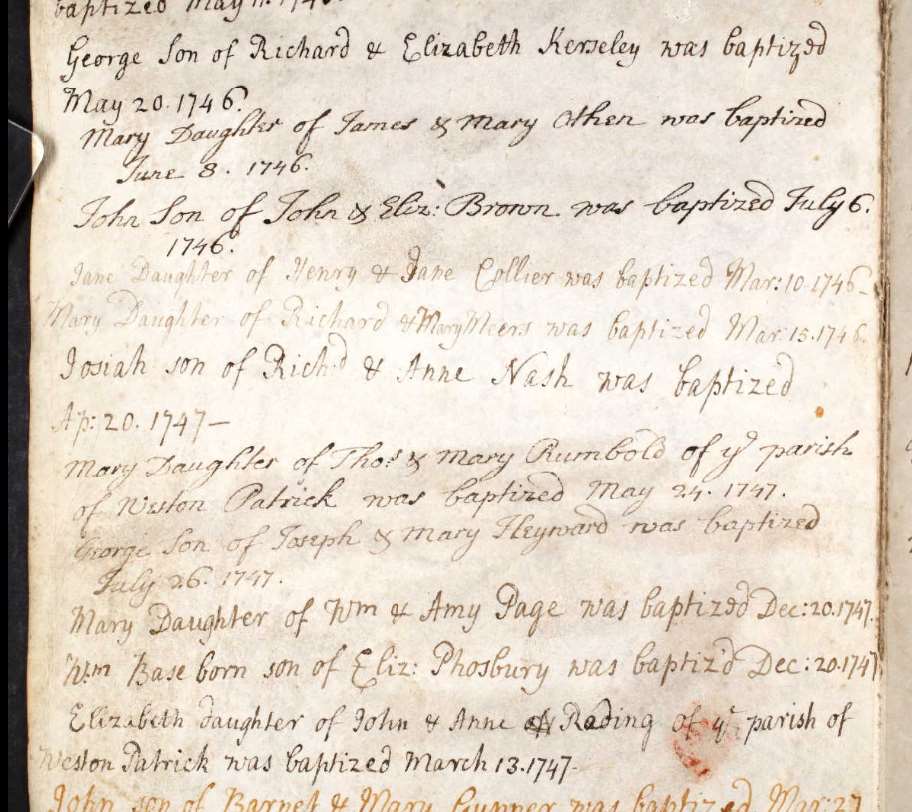 baptized May 11. 1746.
George Son of Richard & Elizabeth Kerseley was baptized
May 20. 1746.
Mary Daughter of James & Mary Othen was baptized
June 8. 1746.
John Son of John & Eliz: Brown was baptized July 6.
1746.
Jane Daughter of Henry & Jane Collier was baptized Mar: 10. 1746-
Mary Daughter of Richard & Mary Meers was baptized Mar: 15. 1746.
Josiah son of Rich:d & Anne Nash was baptized
Ap: 20. 1747-
Mary Daughter of Thos & Mary Rumbold of ye parish
of Weston Patrick was baptized May 24. 1747.
George Son of Joseph & Mary Heyward was baptized
July 26. 1747.
Mary Daughter of Wm & Amy Page was baptized Dec: 20. 1747.
Wm Base born son of Eliz: Phosbury was baptiz'd Dec: 20. 1747
Elizabeth daughter of John & Anne Rading of ye parish of
Weston Patrick was baptized March 13. 1747-
John son of Barnet & Mary was baptized Mar: 27